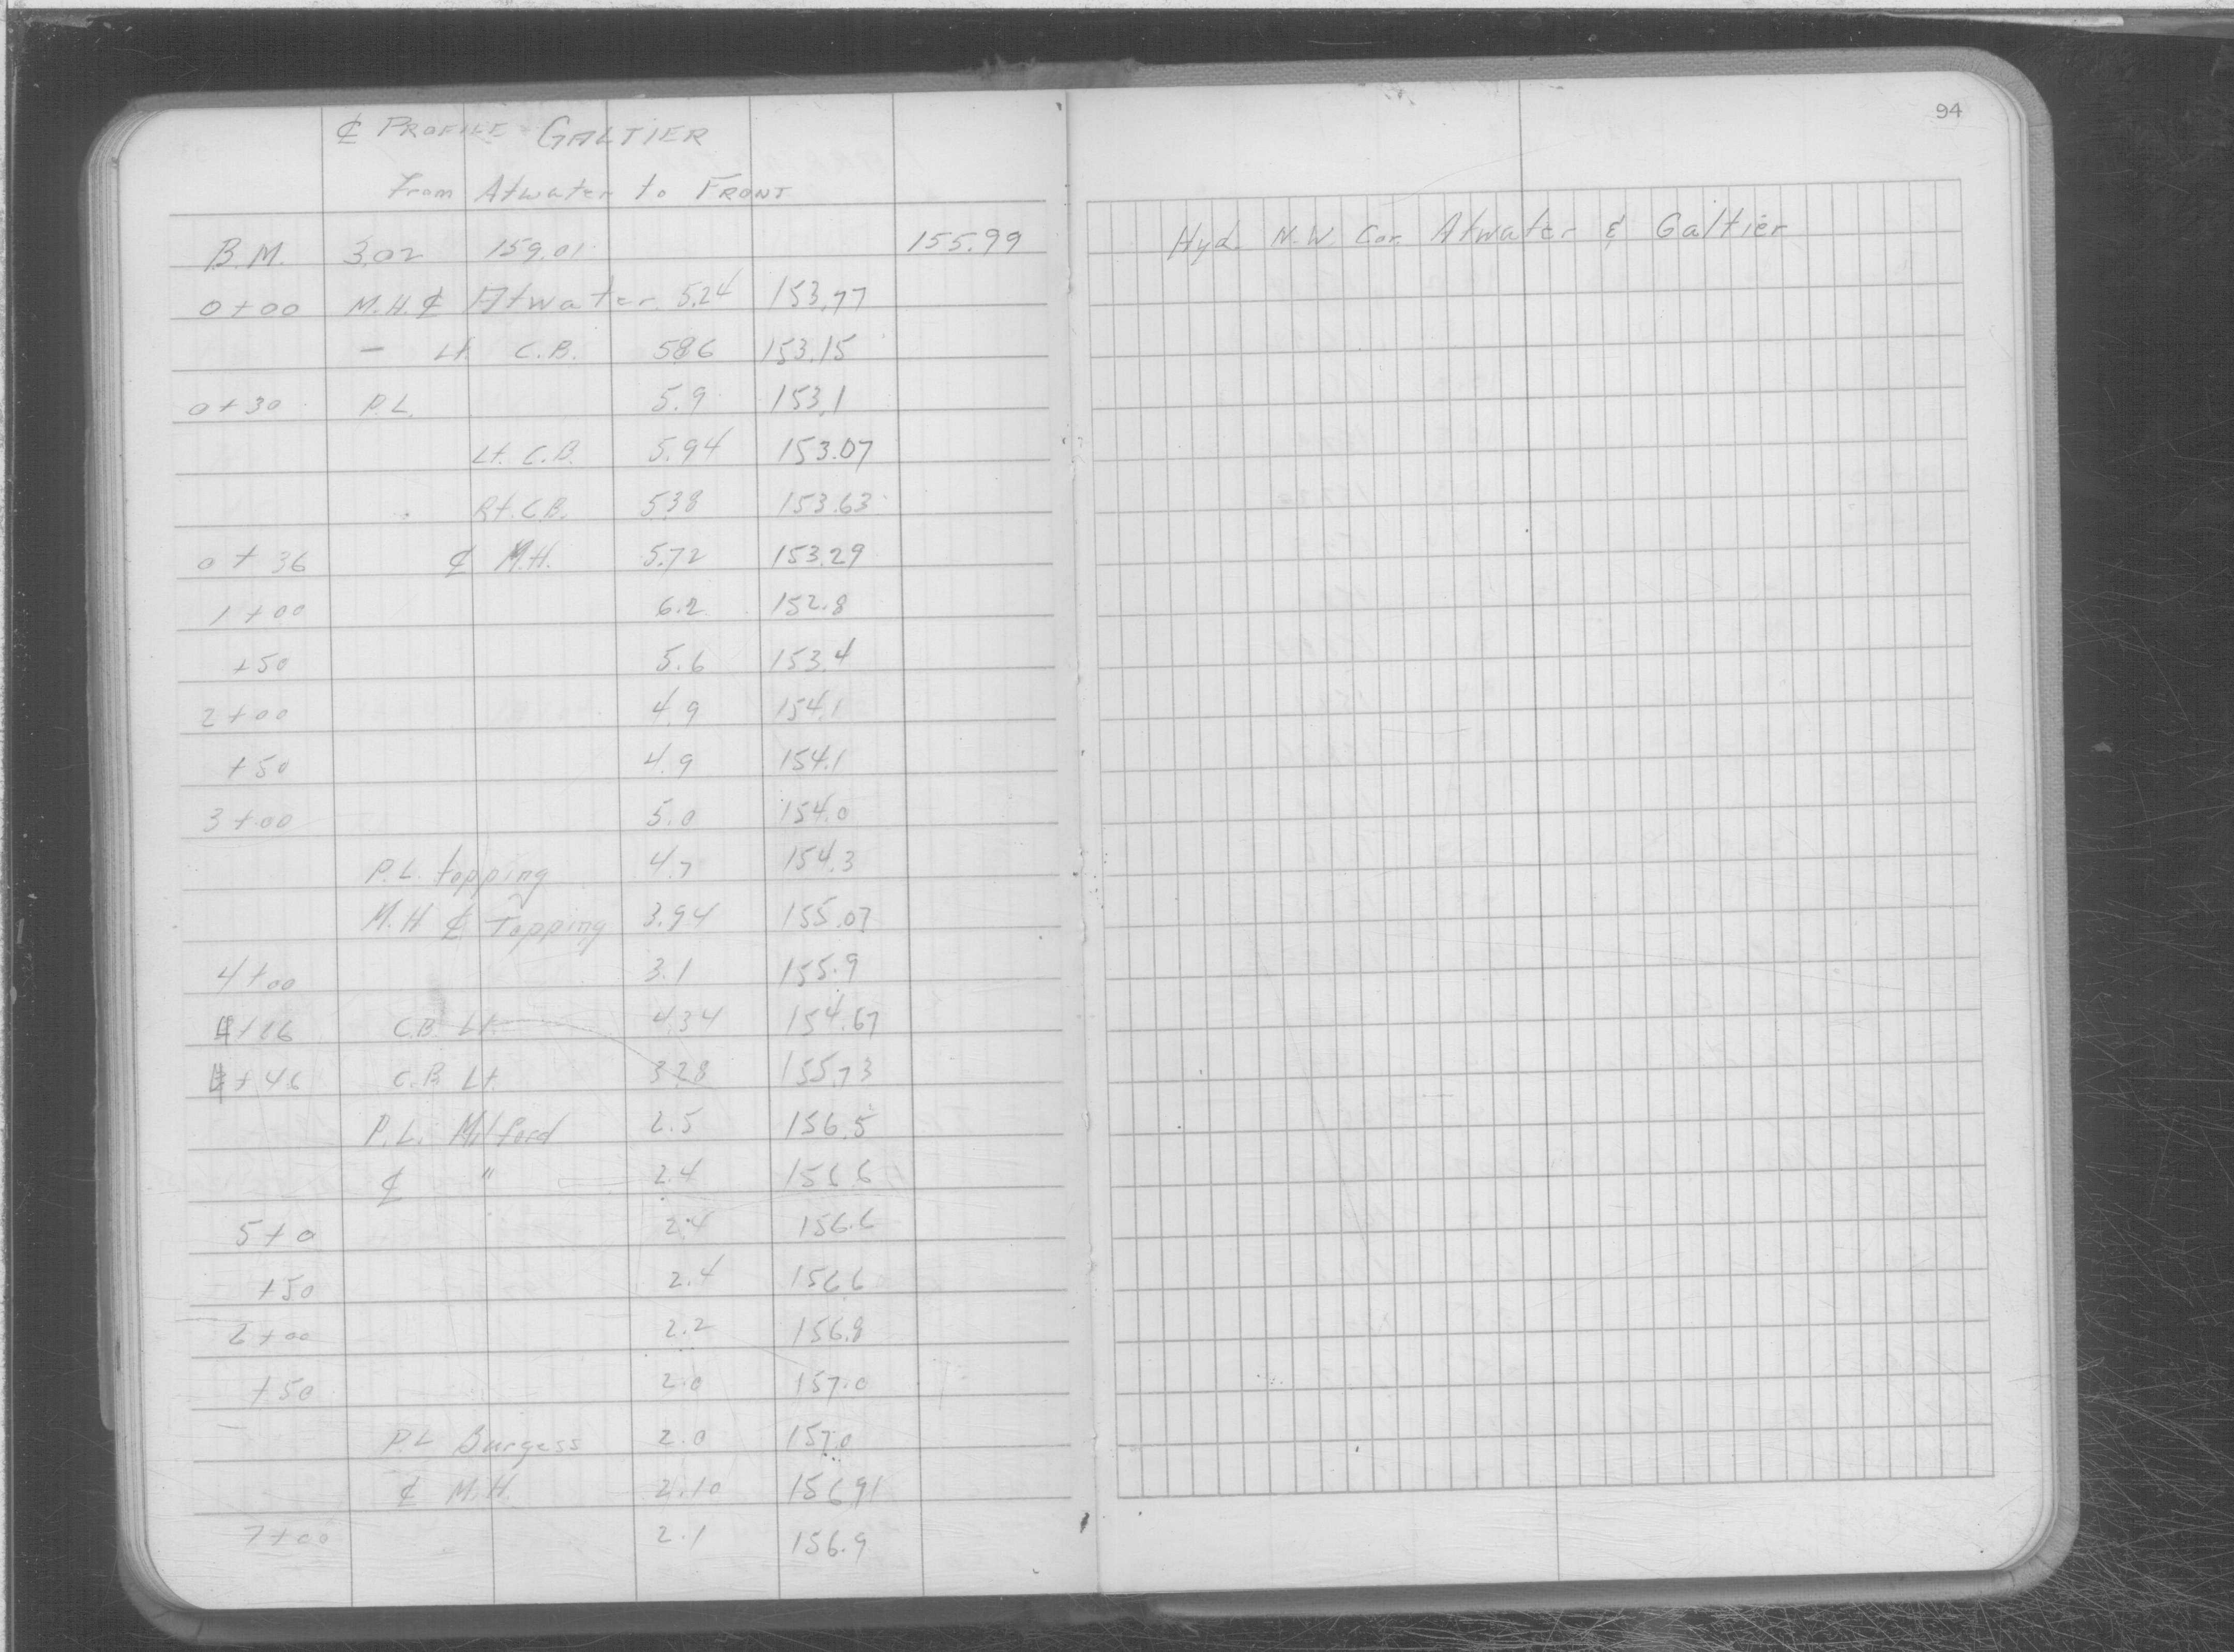 94
₵ PROFILE GALTIER
From Atwater to FRONT
B.M. 3.02 159.01 155.99 Hyd. N.W. Cor. Atwater & Galtier
0+00 M.H. ₵ Atwater 5.24 153.77
— Lt C.B. 5.86 153.15
0+30 P.L. 5.9 153.1
Lt. C.B. 5.94 153.07
Rt. C.B. 5.38 153.63
0+36 ₵ M.H. 5.72 153.29
1+00 6.2 152.8
+50 5.6 153.4
2+00 4.9 154.1
+50 4.9 154.1
3+00 5.0 154.0
P.L. topping 4.7 154.3
M.H ₵ Topping 3.94 155.07
4+00 3.1 155.9
4+16 C.B. Lt. 4.34 154.67
4+46 C.B. Lt. 3.28 155.73
P.L. Milford 2.5 156.5
₵ " 2.4 156.6
5+0 2.4 156.6
+50 2.4 156.6
6+00 2.2 156.8
+50 2.0 157.0
P.L Burgess 2.0 157.0
₵ M.H. 2.10 156.91
7+00 2.1 156.9